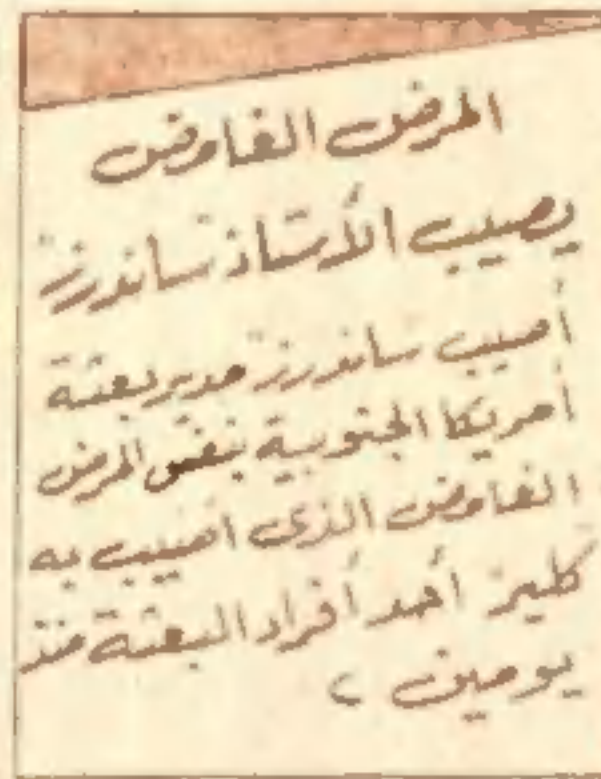 المرض الغامض
يصيب الأستاذ "ساندرز"
أصيب ساندرز مدير بعثة
أمريكا الجنوبية بنفس المرض
الغامض الذى أصيب به
كلير أحد أفراد البعثة منذ
يومين ،